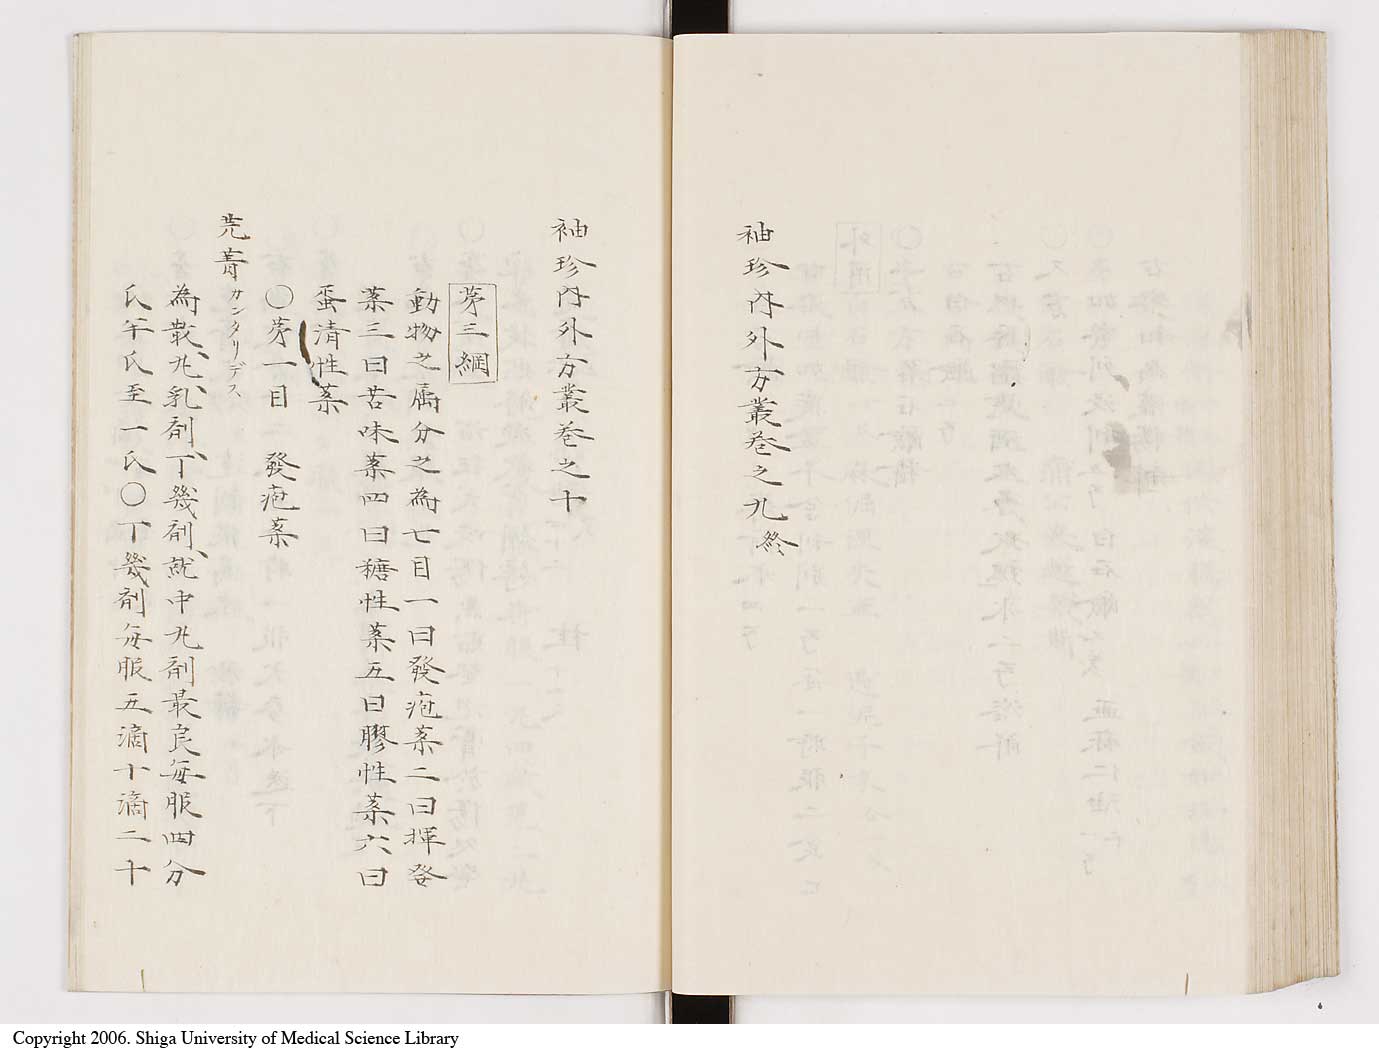 袖珍内外方叢巻之九終
袖珍内外方叢巻之十
苐三綱
動物之属分之為七目一曰發疱薬二曰揮發
薬三曰苦味薬四曰糖性薬五曰膠性薬六曰
蛋清性薬
○苐一目 發疱薬
芫菁カンタリデス
為散丸乳剤丁幾剤就中丸剤最良毎服四分
氏半氏至一氏○丁幾剤毎服五滴十滴二十
Copyright 2006. Shiga University of Medical Science Library